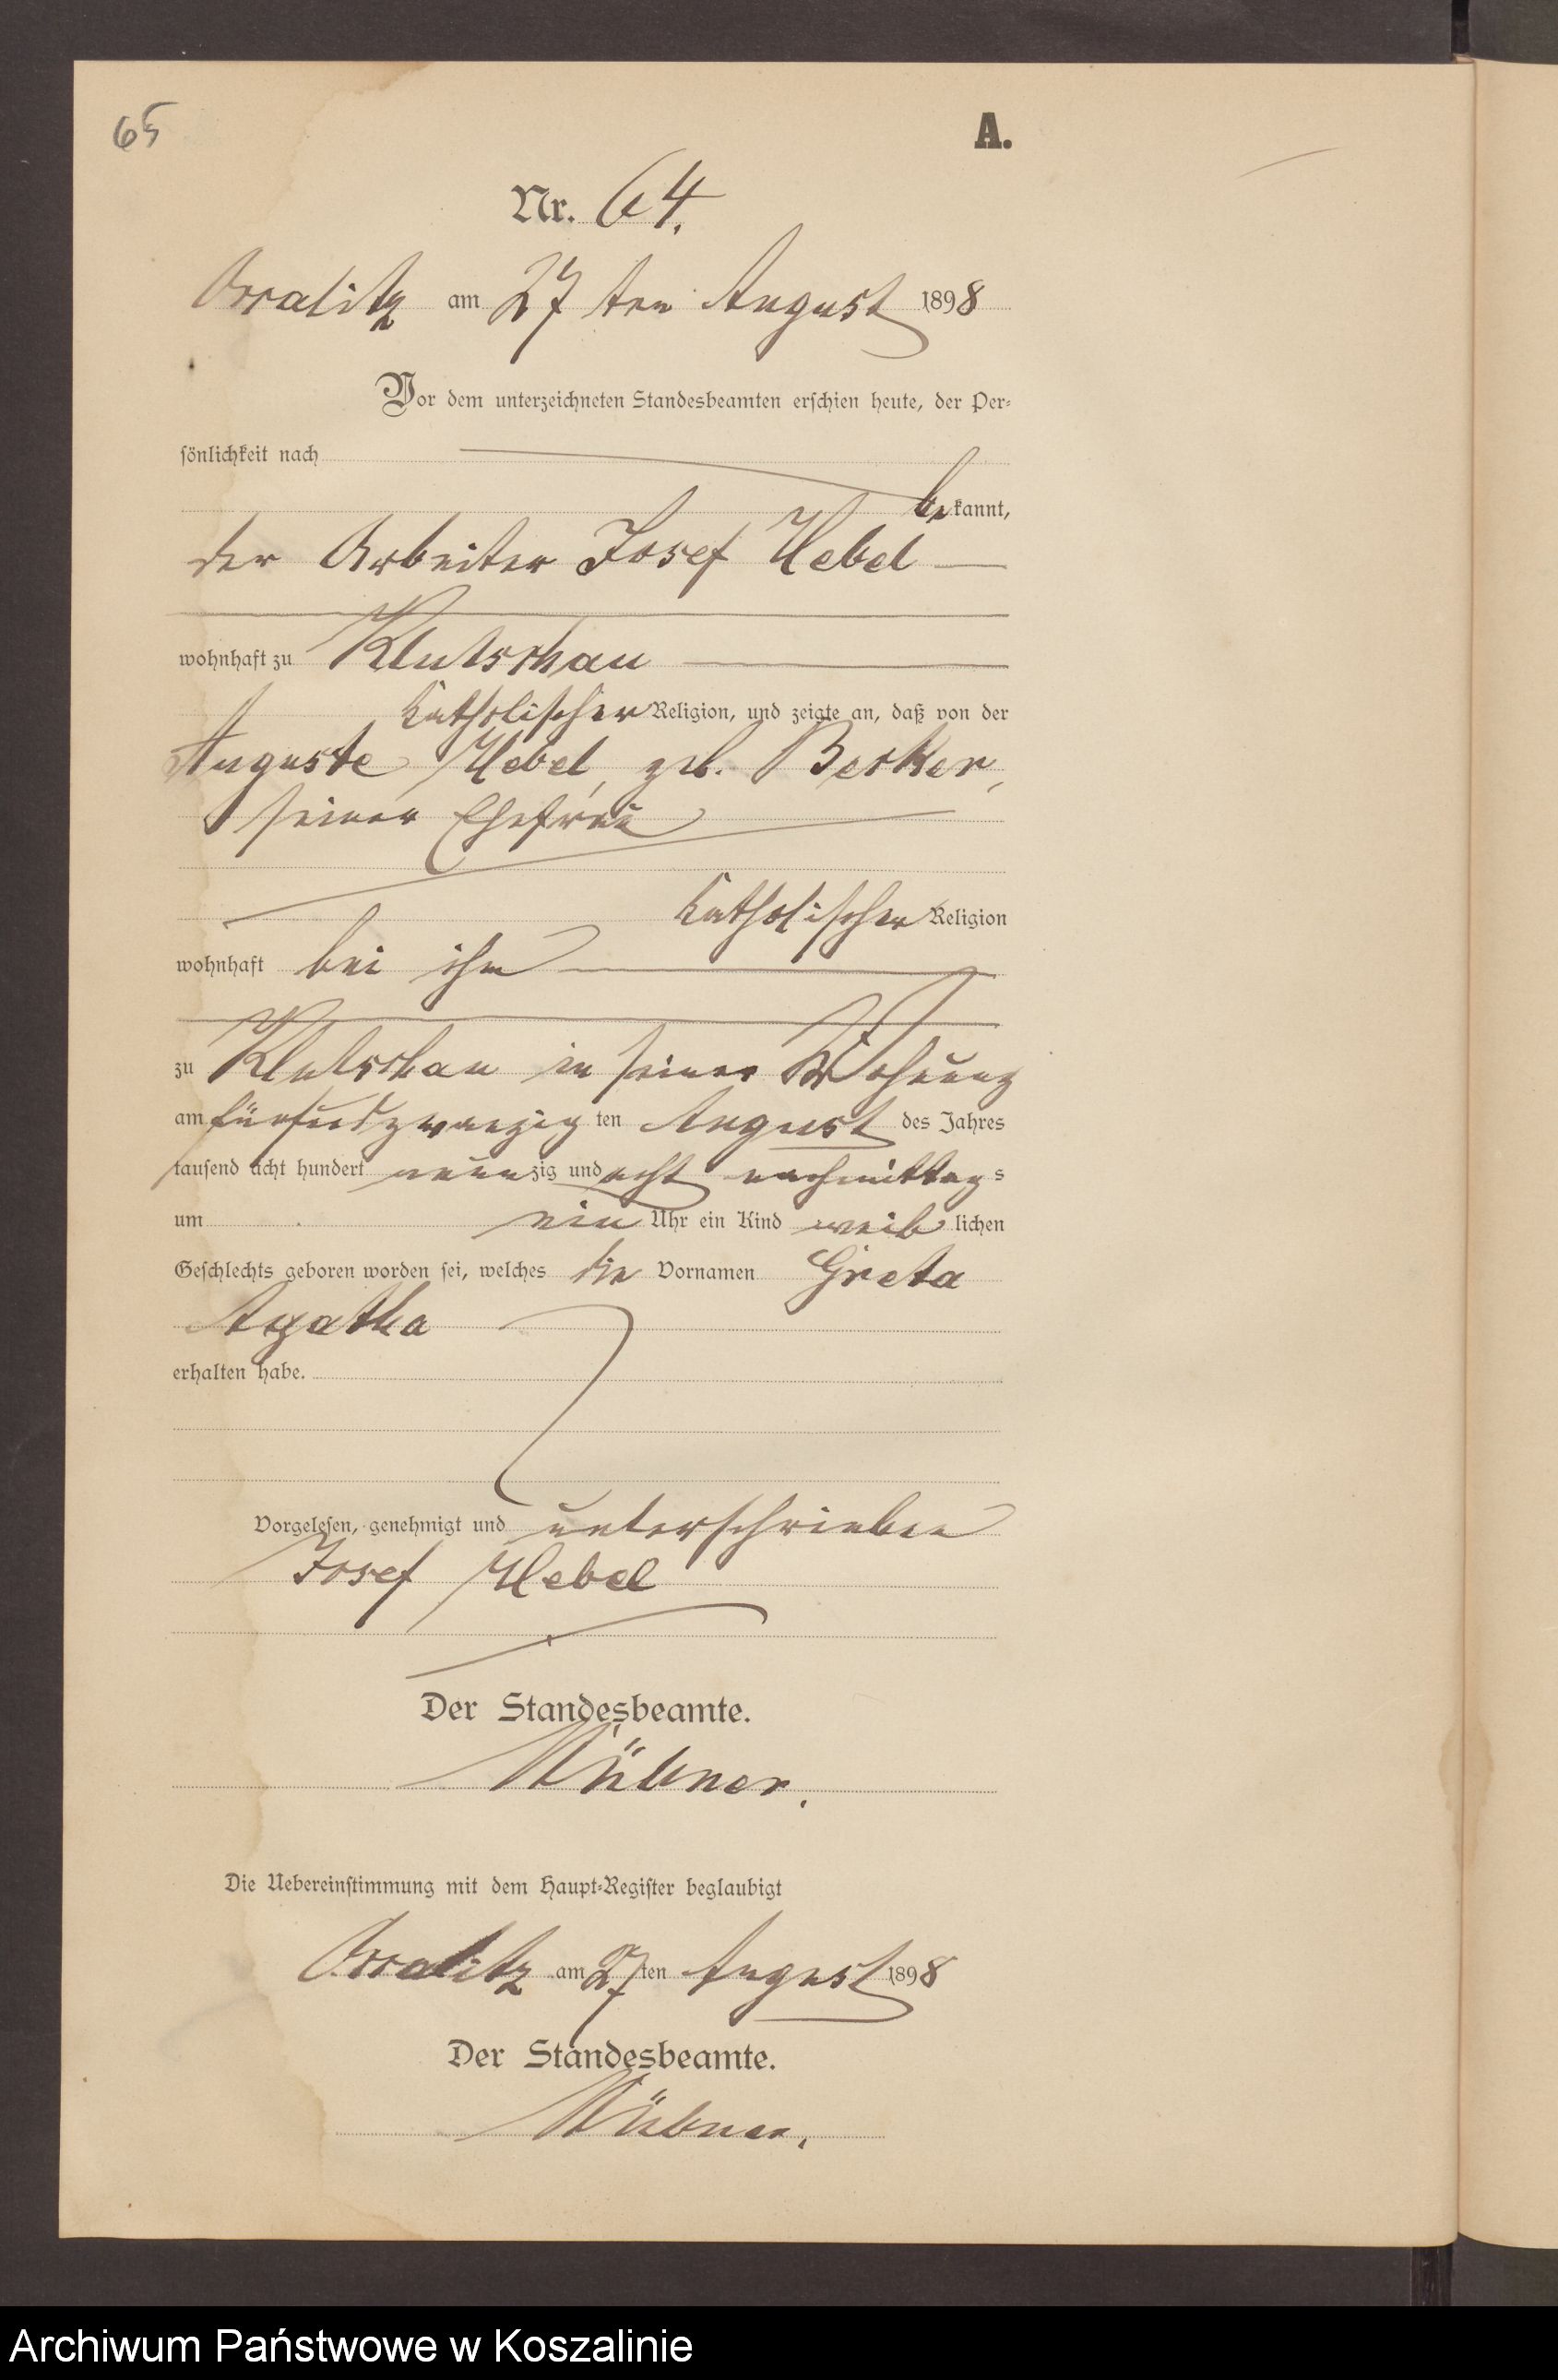 65
A.
Nr. 64.
am 27 ten August 1898
Vor dem unterzeichneten Standesbeamten erschien heute, der Per-
sönlichkeit nach
bekannt,
der Arbeiter Josef Hebel
wohnhaft zu Klutschau
katholischer Religion, und zeigte an, daß von der
Auguste Hebel, geb. Becker,
seiner Ehefrau
katholischer Religion
wohnhaft bei ihm
zu Klutschau in seiner Wohnung
am fünfundzwanzig ten August des Jahres
tausend acht hundert neunzig und acht nachmittags
um ein Uhr ein Kind weiblichen
Geschlechts geboren worden sei, welches die Vornamen Greta
Agatha
erhalten habe.
Vorgelesen, genehmigt und unterschrieben
Josef Hebel
Der Standesbeamte.
Die Uebereinstimmung mit dem Haupt-Register beglaubigt
am 27ten August 1898
Der Standesbeamte.
Archiwum Państwowe w Koszalinie